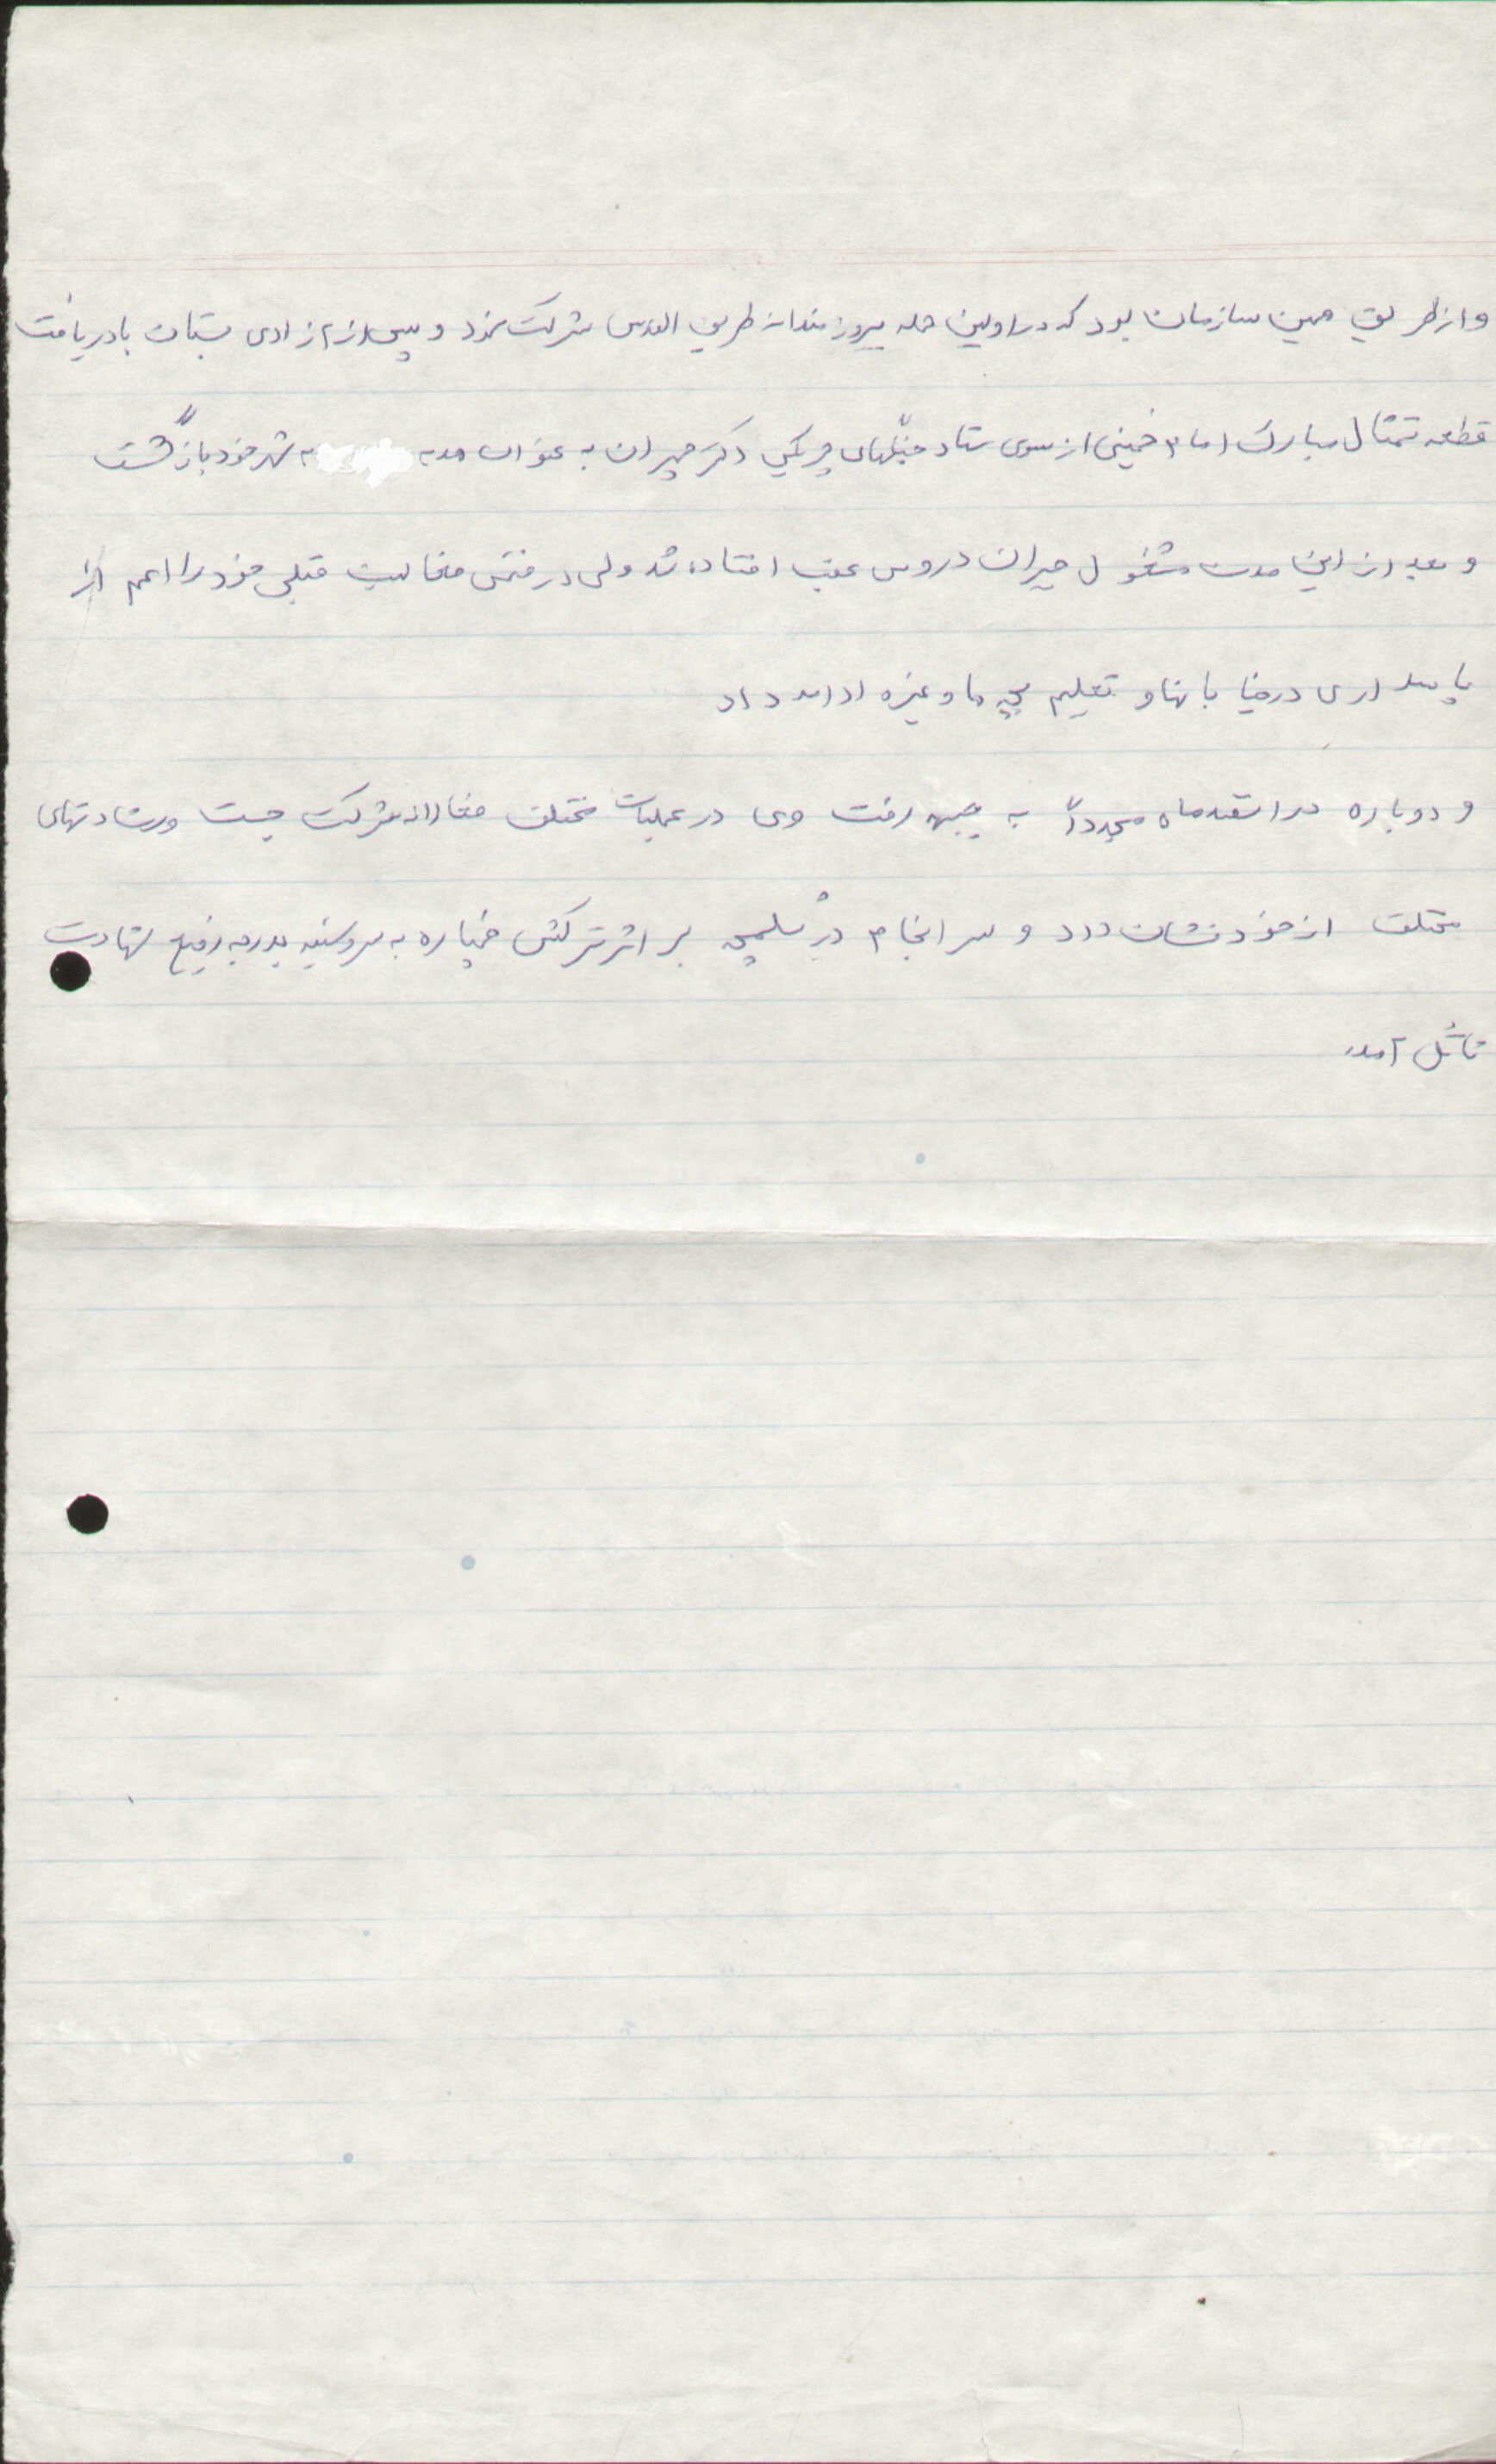 و از طریق همین سازمان بود که در اولین حمله پیروزمندانه طریق القدس شرکت نمود و پس از آزادی بستان با دریافت
قطعه تمثال مبارک امام خمینی از سوی ستاد جنگهای چریکی دکتر چمران به عنوان هدیه به شهر خود بازگشت
و بعد از این مدت مشغول جبران دروس عقب افتاده شد ولی در ضمن فعالیت قبلی خود را اعم از
پاسداری در خیابانها و تعلیم بچه ها و غیره ادامه داد
و دوباره در اسفند ماه مجدداً به جبهه رفت وی در عملیات مختلف فعالانه شرکت جست و رشادتهای
مختلف از خود نشان داد و سرانجام در شلمچه بر اثر ترکش خمپاره به سر و سینه بدرجه رفیع شهادت
نائل آمد.